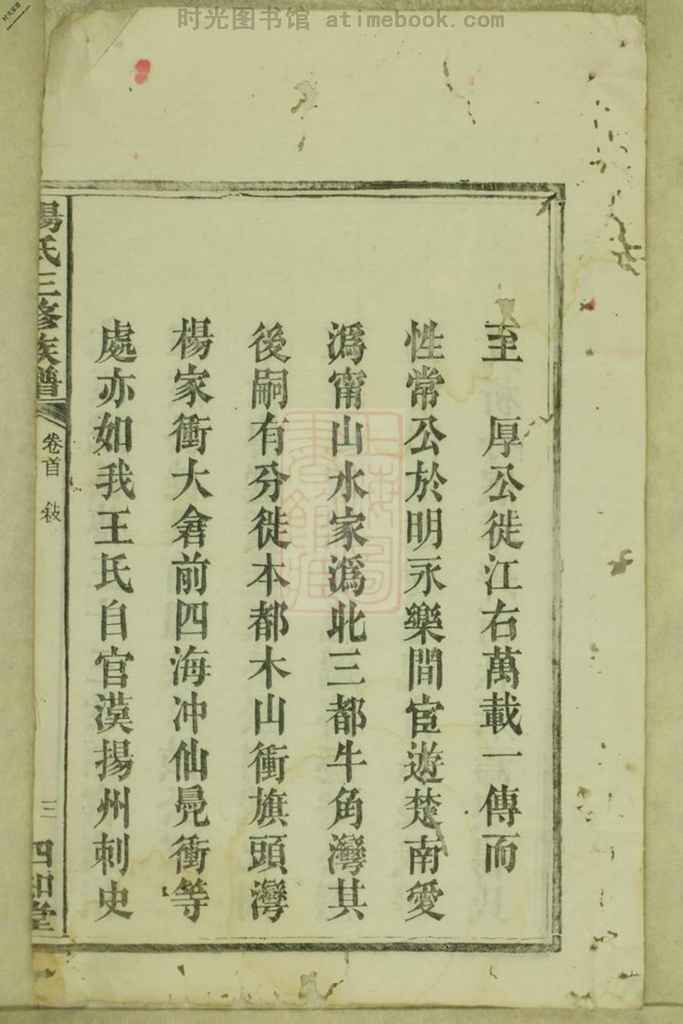 时光图书馆 atimebook.com
至 厚公徙江右萬載一傳而
性常公於明永樂間宦遊楚南愛
溈甯山水家溈北三都牛角灣其
後嗣有分徙本都木山衝旗頭灣
楊家衝大倉前四海冲仙鳧衝等
處亦如我王氏自官漠揚州刺史
楊氏三修族譜
卷首
敍
三
四知堂